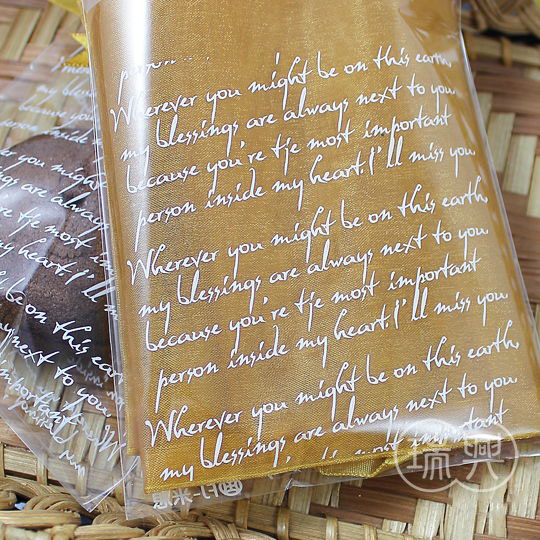 person
Wherever you might be on this earth,
my blessings are always next to you
because you're tje most important
person inside my heart. I'll miss you
Wherever you might be on this earth,
my blessings are always next to you
because you're tje most important
person inside my heart. I'll miss you
Wherever you might be on this earth,
my blessings are always next to you
important
my bless
because you
person inside
er you might
ings are always
re tje most im
my heart. I'll
be on this earth
next to you
important
瑞興